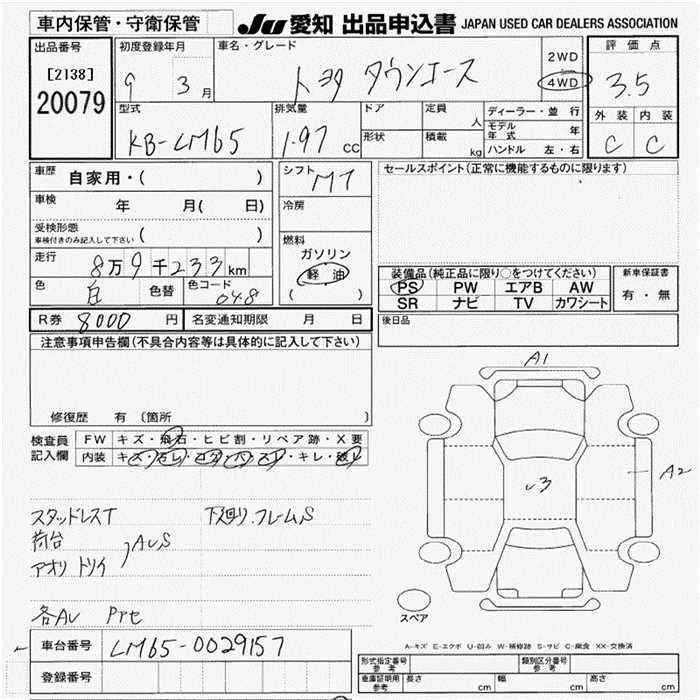 車内保管・守衛保管
JU 愛知 出品申込書 JAPAN USED CAR DEALERS ASSOCIATION
出品番号
[2138]
20079
初度登録年月
9 3月
車名・グレード
トヨタ タウンエース
2WD
4WD
評価点
3.5
外装 内装
C C
型式
KB-LM65
排気量
1.97 cc
ドア
形状
定員
人
積載
kg
ディーラー・並行
モデル年式 年
ハンドル 左・右
車歴
自家用・( )
車検
年 月( 日)
受検形態
車検付きのみ記入して下さい ( )
走行
8万9千233km
色
白
色替
色コード
048
シフト
MT
冷房
燃料
ガソリン
軽油
( )
セールスポイント(正常に機能するものに限ります)
装備品(純正品に限り○をつけてください)
PS PW エアB AW
SR ナビ TV カワシート
新車保証書
有・無
R券 8000 円
名変通知期限 月 日
後日品
注意事項申告欄(不具合内容等は具体的に記入して下さい)
修復歴 有 (箇所 )
検査員
記入欄
FW キズ・飛石・ヒビ割・リペア跡・X要
内装
スタッドレスT
荷台
アオリ トリイ
AUS
下廻り、フレームS
各AU
A1
A2
スペア
A-キズ E-エクボ U-凹み W-補修跡 S-サビ C-腐食 XX-交換済
車台番号 LM65-0029157
登録番号
形式指定番号
参考
類別区分番号
参考
車庫証明用
参考
長さ cm
幅 cm
高さ cm